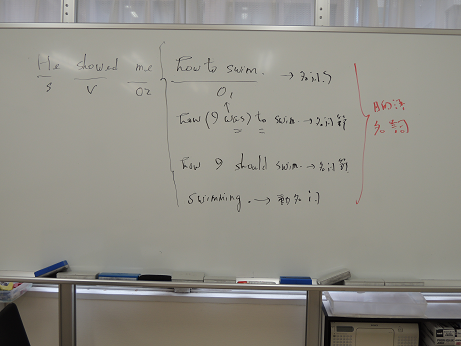 He showed me how to swim. → 名詞句
S V O2 O1
how (I was) to swim. → 名詞節
how I should swim. → 名詞節
swimming. → 動名詞
名詞